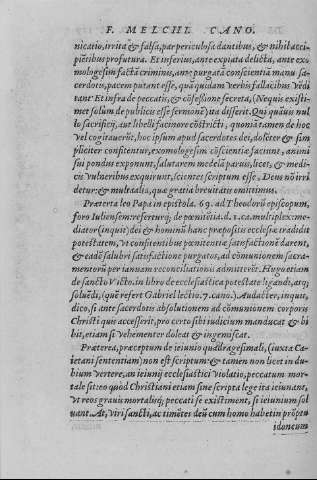 F. MELCHI. CANO.
nicatio, irrita & falsa, par periculosa dantibus, & nihil acci-
piētibus profutura. Et inferius, ante expiata delicta, ante exo
mologesim factā criminis, ante purgatā conscientiā manu sa-
cerdotis, pacem putant esse, quā quidam verbis fallacibus vēdi
tant Et infra de peccatis, & cōfessione secreta, (Nequis existi-
met solum de publicis esse sermonē) ita disserit. Qui quāuis nul
lo sacrificij, aut libelli facinore cōstricti, quoniā tamen de hoc
vel cogitauerūt, hoc ipsum apud sacerdotes dei, dolēter & sim
pliciter confitentur, exomologesim cōscientiæ faciunt, animi
sui pondus exponunt, salutarem medelā paruis, licet, & medi-
cis vulneribus exquirunt, scientes scriptum esse. Deus nō irri
detur: & multa alia, quæ gratia breuitatis omittimus.
Præterea leo Papa in epistola. 69. ad Theodorū episcopum,
foro Iuliensem: refertur de pœnitētia. d. 1. ca. multiplex: me-
diator (inquit) dei & hominū hanc præpositis ecclesiæ tradidit
potestatem, vt confitentibus pœnitentiæ satisfactionē darent,
& eadē salubri satisfactione purgatos, ad cōmunionem sacra-
mentorū per ianuam reconciliationis admitterēt. Hugo etiam
de sancto Victo. in libro de ecclesiastica potestate ligandi, atq;
soluēdi, (quē refert Gabriel lectio. 7. cano.) Audacter, inquit,
dico, si ante sacerdotis absolutionem ad cōmunionem corporis
Christi quis accesserit, pro certo sibi iudicium manducat & bi
bit, etiam si vehementer doleat & ingemiscat.
Præterea, præceptum de ieiunio quadragesimali, (iuxta Ca-
ietani sententiam) non est scriptum: & tamen non licet in du-
bium vertere, an ieiunij ecclesiastici violatio, peccatum mor-
tale sit: eo quod Christiani etiam sine scripta lege ita ieiunant,
vt reos grauis mortalisq; peccati se existiment, si ieiunium sol
uant. At, viri sancti, ac timētes deū cum homo habet in prōptu
idoneum